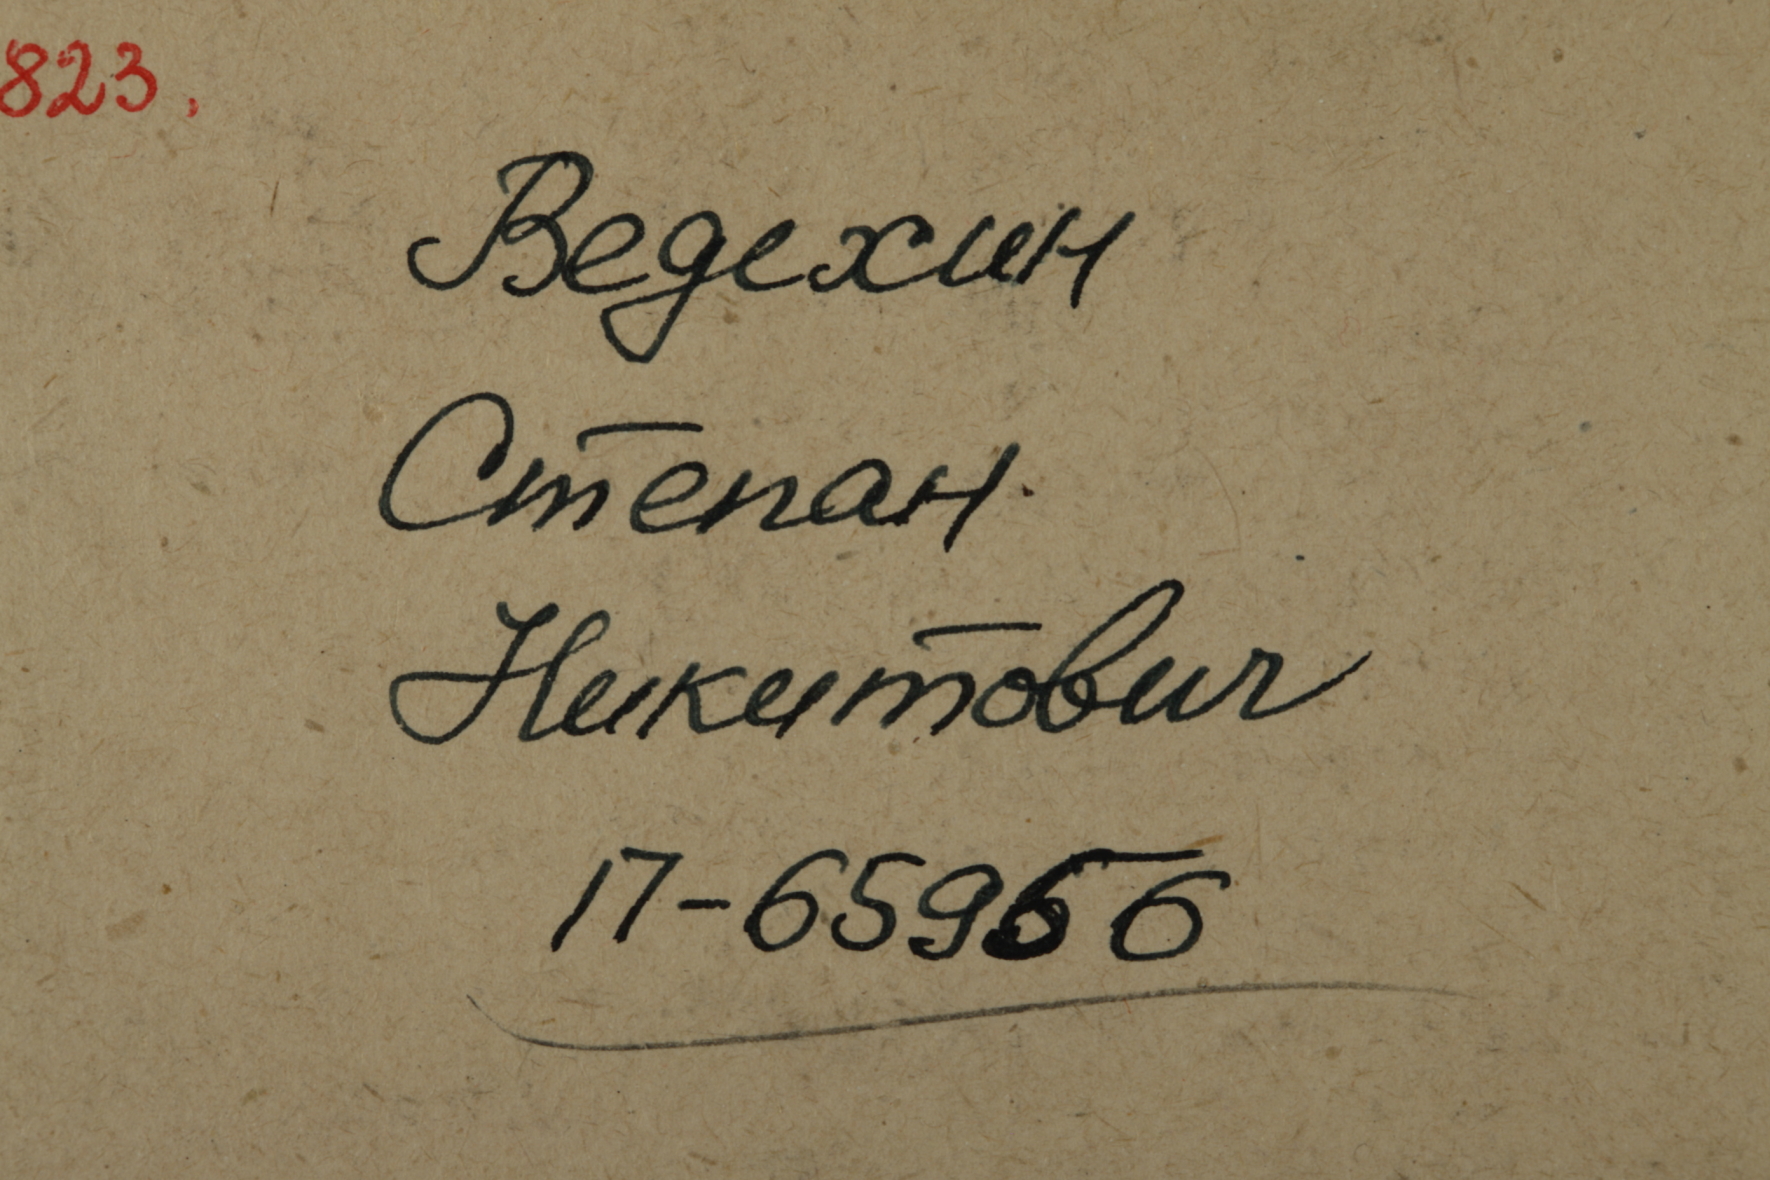 823.
Ведехин
Степан
Никитович
П-65956